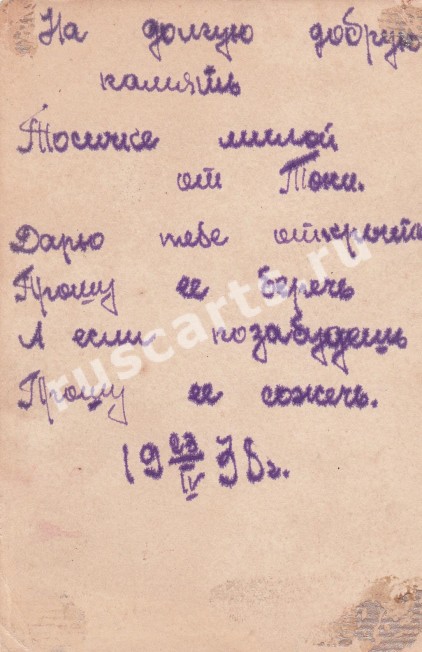 На долгую добрую
память
Тосичке милой
от Тони.
Дарю тебе открытк
Прошу ее беречь
А если позабудешь
Прошу ее сожечь.
19 23/IV 38г.
ruscarts.ru